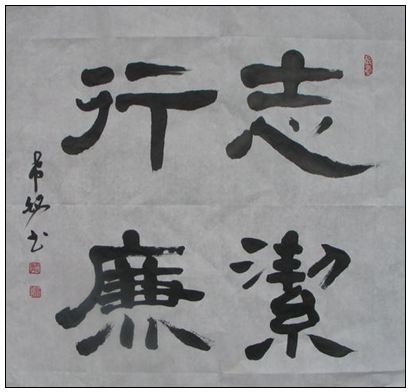 志潔
行廉
书